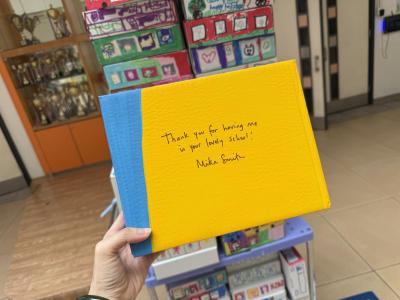 Thank you for having me
in your lovely school!
Mika Smith